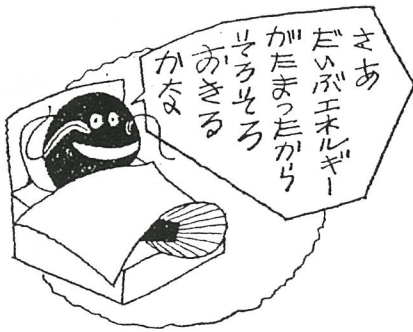 さあ
だいぶエネルギー
がたまったから
そろそろ
おきる
かな